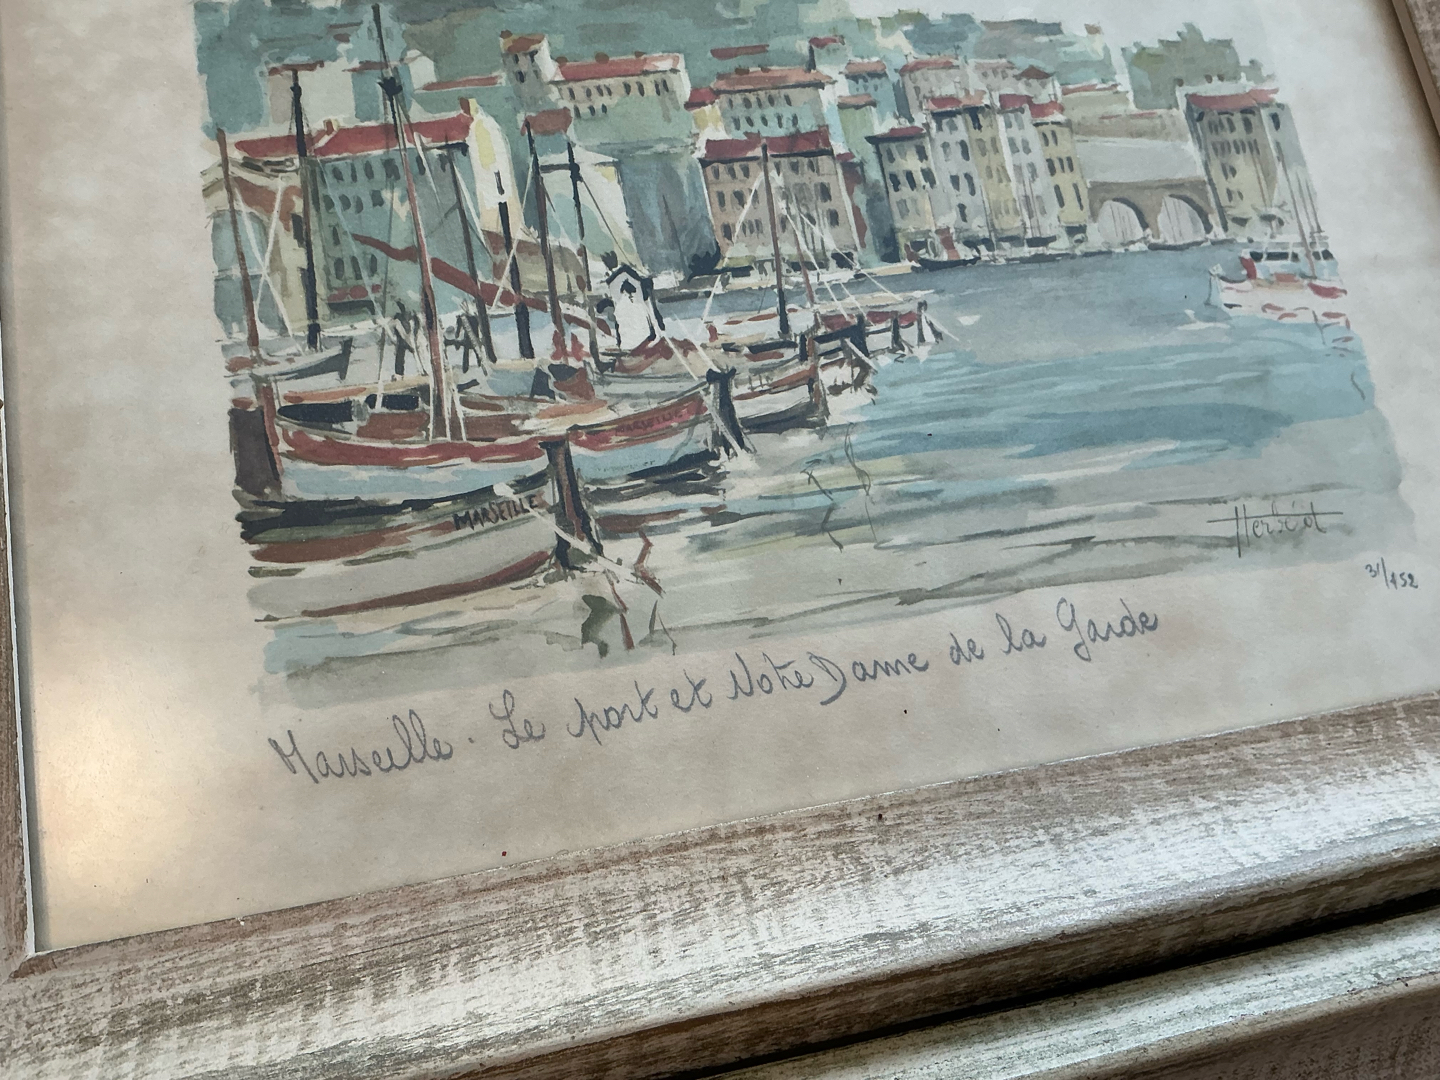 MARSEILLE
MARSEILLE
Marseille. Le port et Notre Dame de la Garde